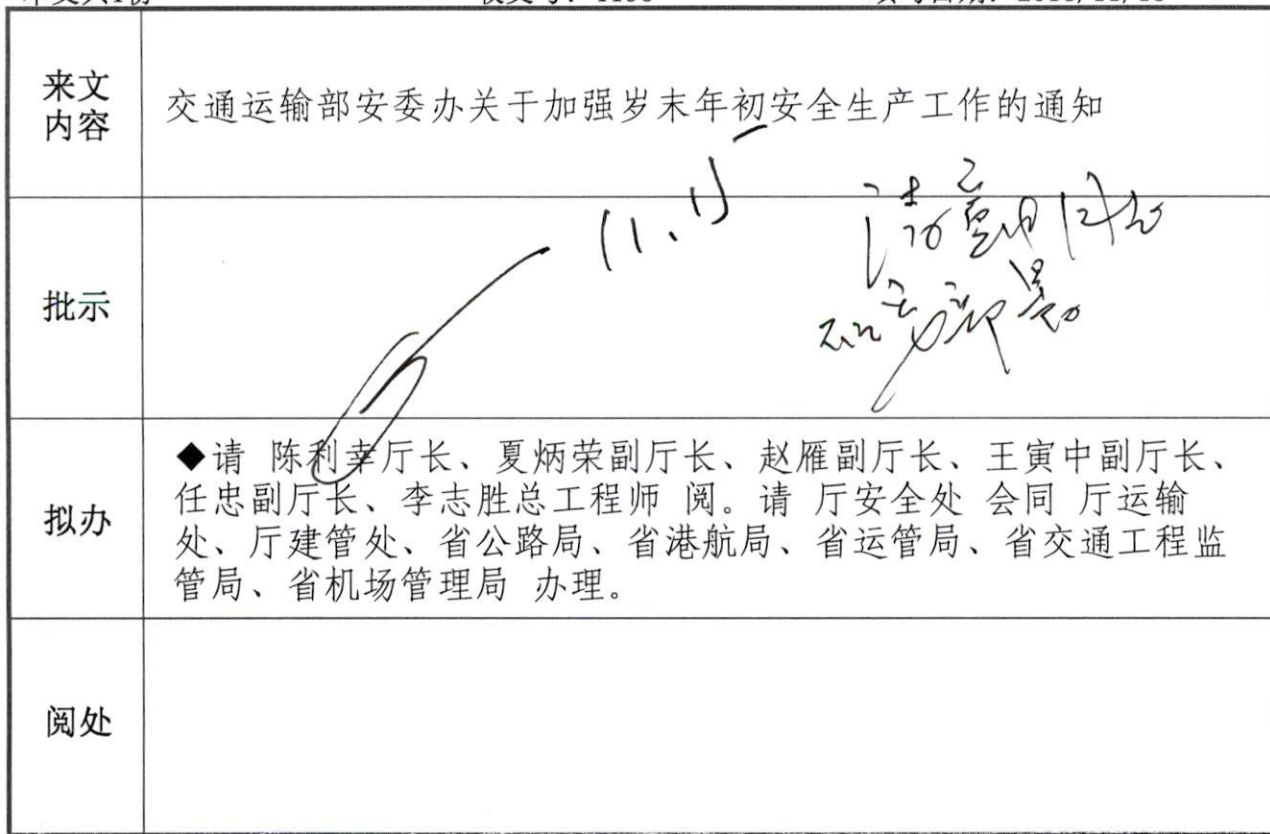 来文
内容
交通运输部安委办关于加强岁末年初安全生产工作的通知
批示
11.15
拟办
◆请 陈利幸厅长、夏炳荣副厅长、赵雁副厅长、王寅中副厅长、
任忠副厅长、李志胜总工程师 阅。请 厅安全处 会同 厅运输
处、厅建管处、省公路局、省港航局、省运管局、省交通工程监
管局、省机场管理局 办理。
阅处